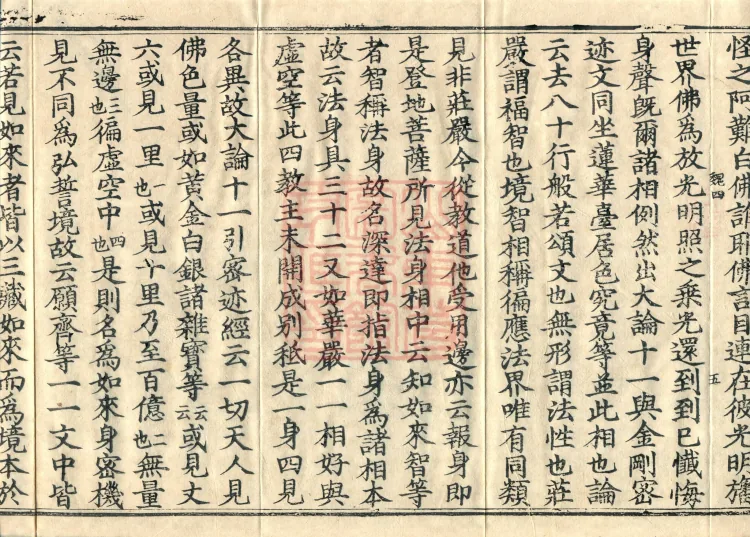 怪之阿難白佛詎耶佛言目連在彼光明旛
世界佛為放光明照之乗光還到到已懺悔
身聲既爾諸相例然出大論十一與金剛宻
迹文同坐蓮華臺居色究竟等並此相也論
云去八十行般若頌文也無形謂法性也莊
嚴謂福智也境智相稱徧應法界唯有同類
見非莊嚴今從教道他受用邊亦云報身即
是登地菩薩所見法身相中云知如來智等
者智稱法身故名深達即指法身為諸相本
故云法身具三十二又如華嚴一一相好與
虛空等此四教主未開成别秖是一身四見
各異故大論十一引宻迹經云一切天人見
佛色量或如黃金白銀諸雜寶等云云或見丈
六或見一里也一或見十里乃至百億也二無量
無邊也三徧虛空中也四是則名為如來身宻機
見不同為弘誓境故云願齊等一一文中皆
云若見如來者皆以三讖如來而為境本於